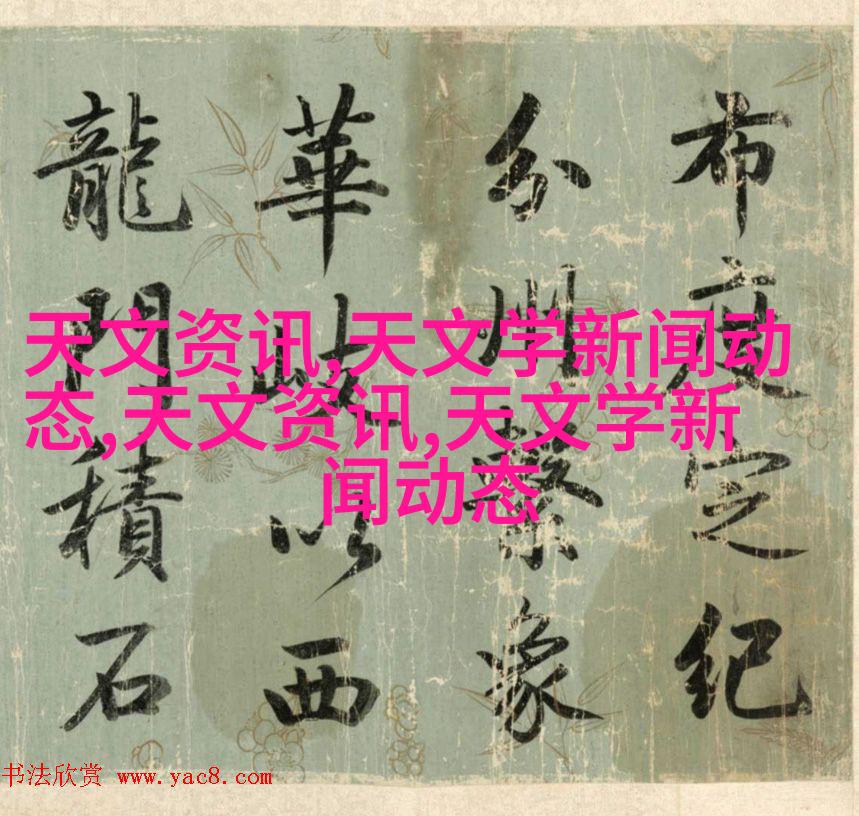 布度定紀
分州繫象
華岥以西
龍門積石
天文资讯,天文学新闻动
态,天文资讯,天文学新
闻动态
书法欣赏 www.yac8.com